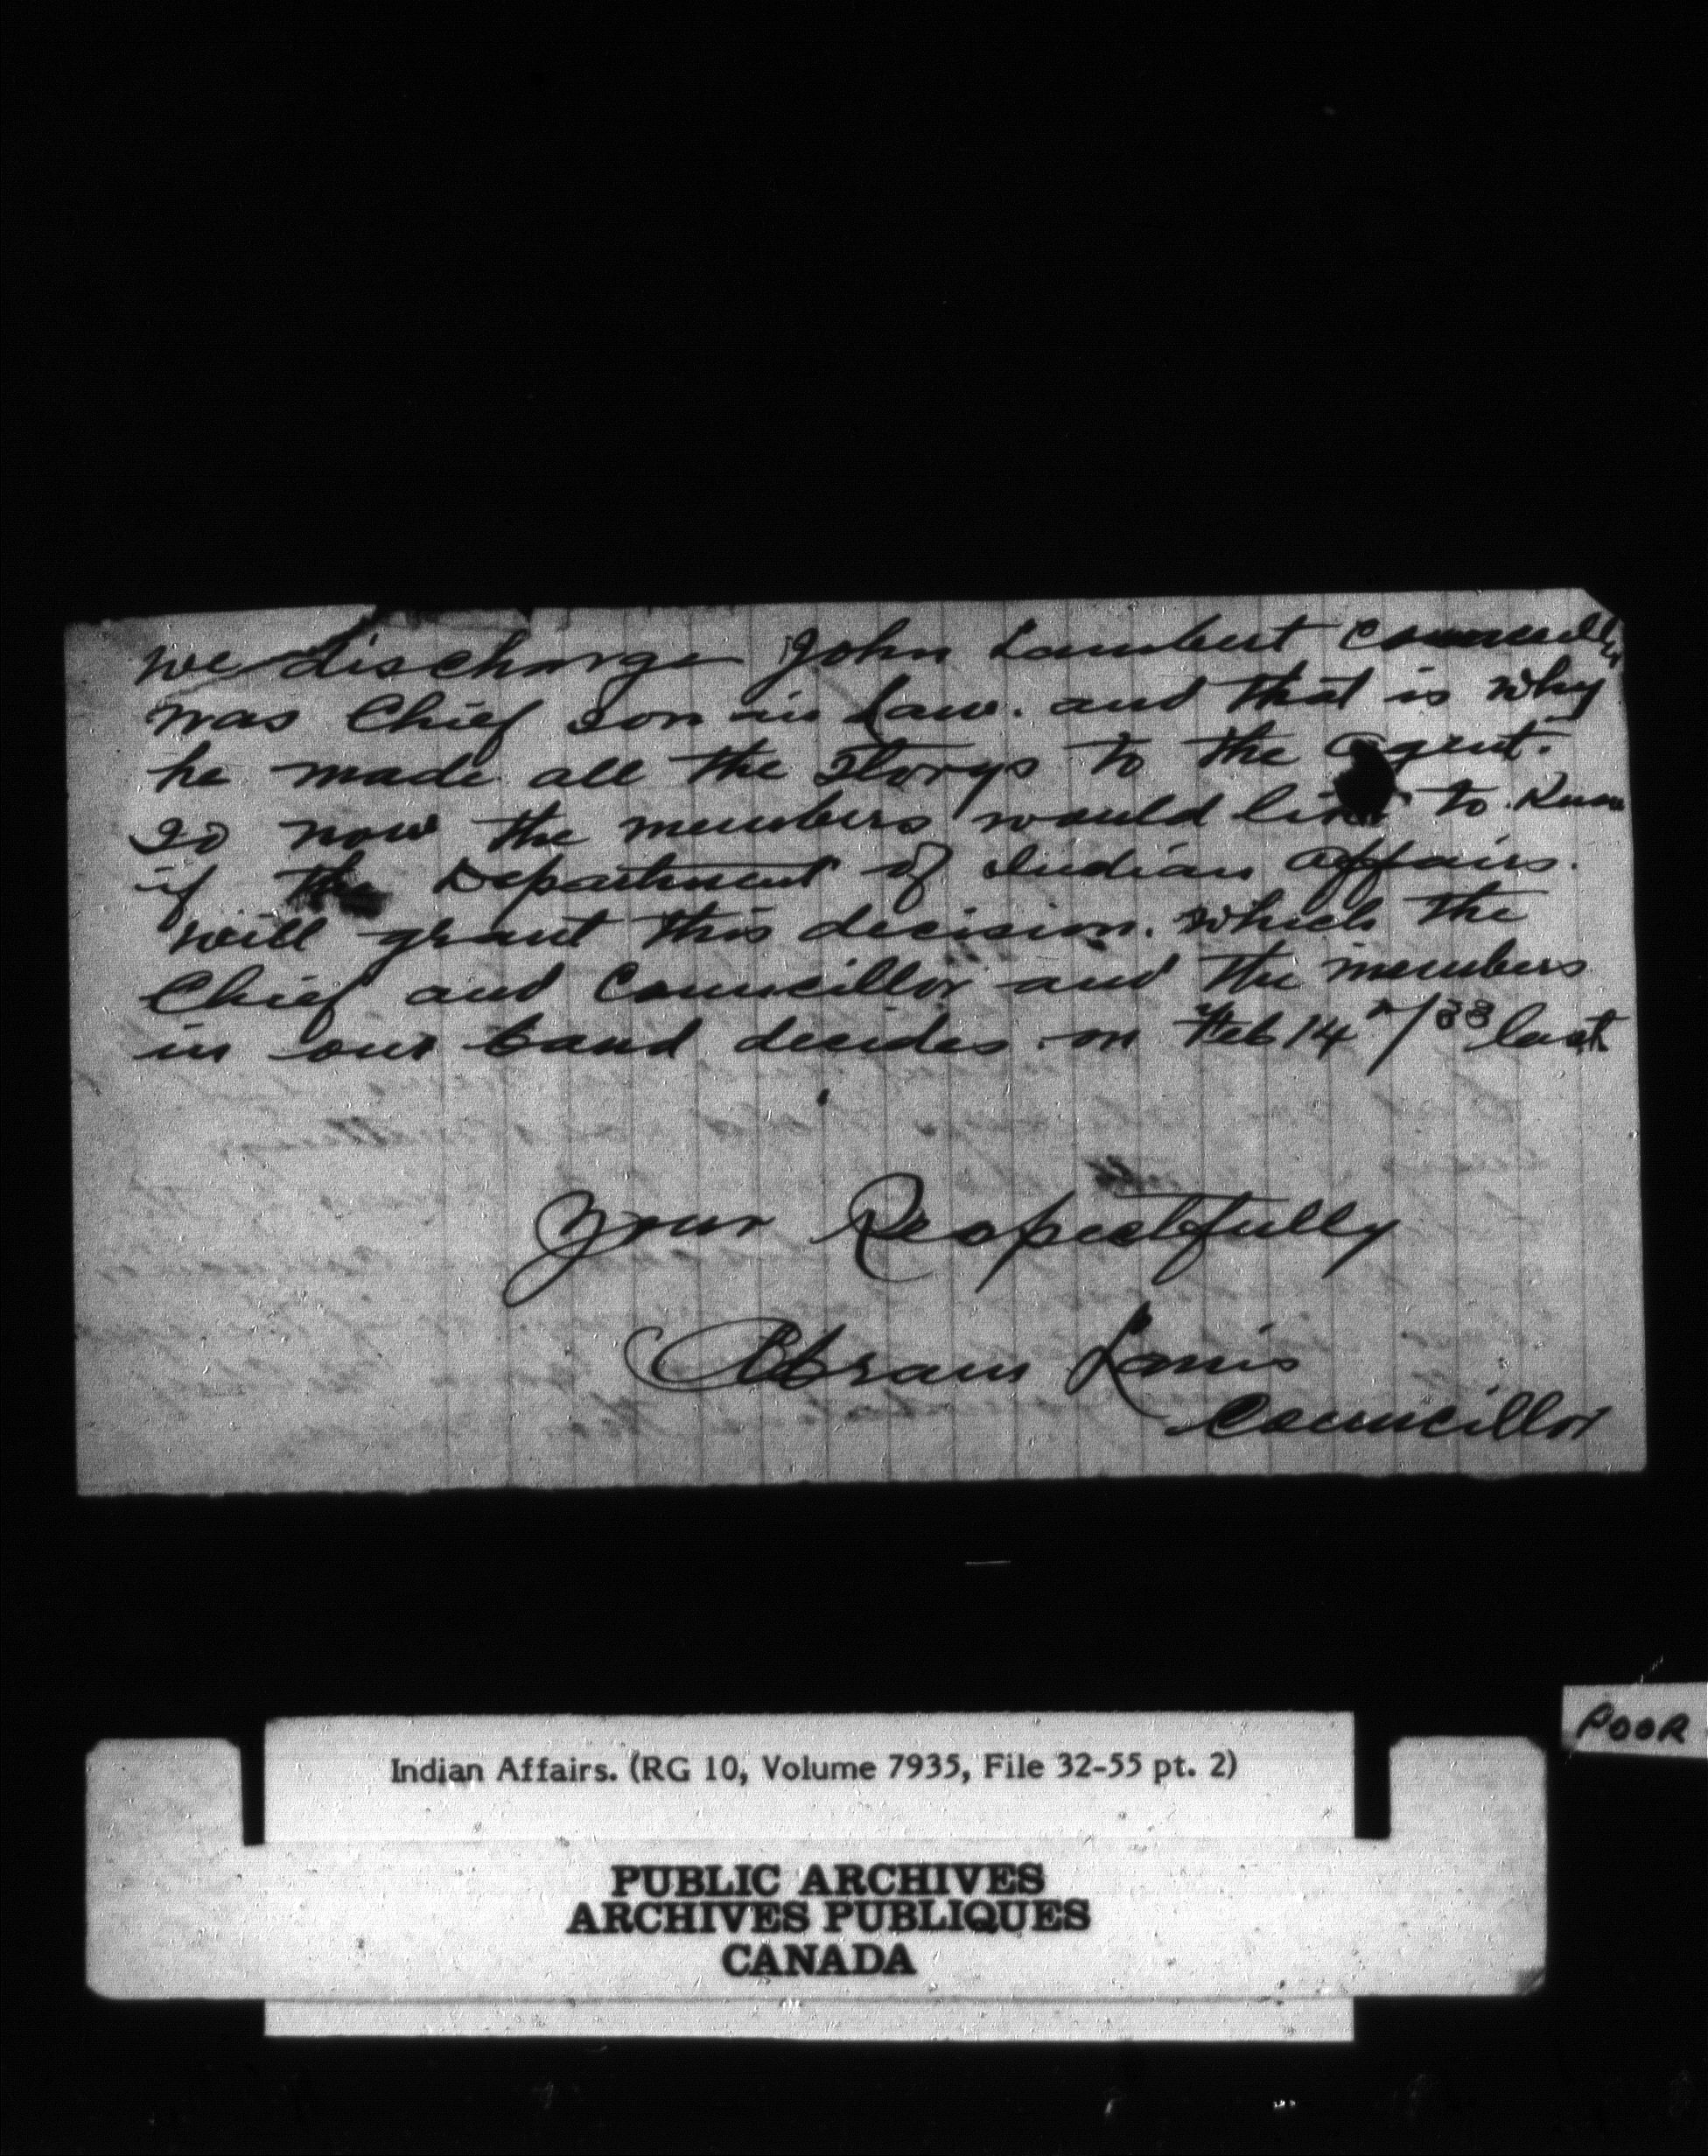 we discharge John Lambert Councillor
was Chief son in Law. and that is why
he made all the Storys to the agent.
so now the members would like to Know
if the Department of Indian Affairs.
will grant this decision. which the
Chief and Councillor and the members
in our band decides on Feb 14th/33 last
Your Respectfully
Abram Louis
Councillor
POOR
Indian Affairs. (RG 10, Volume 7935, File 32-55 pt. 2)
PUBLIC ARCHIVES
ARCHIVES PUBLIQUES
CANADA